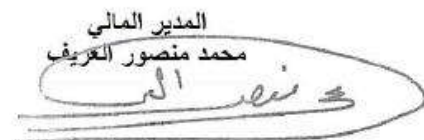 المدير المالي
محمد منصور الغريف